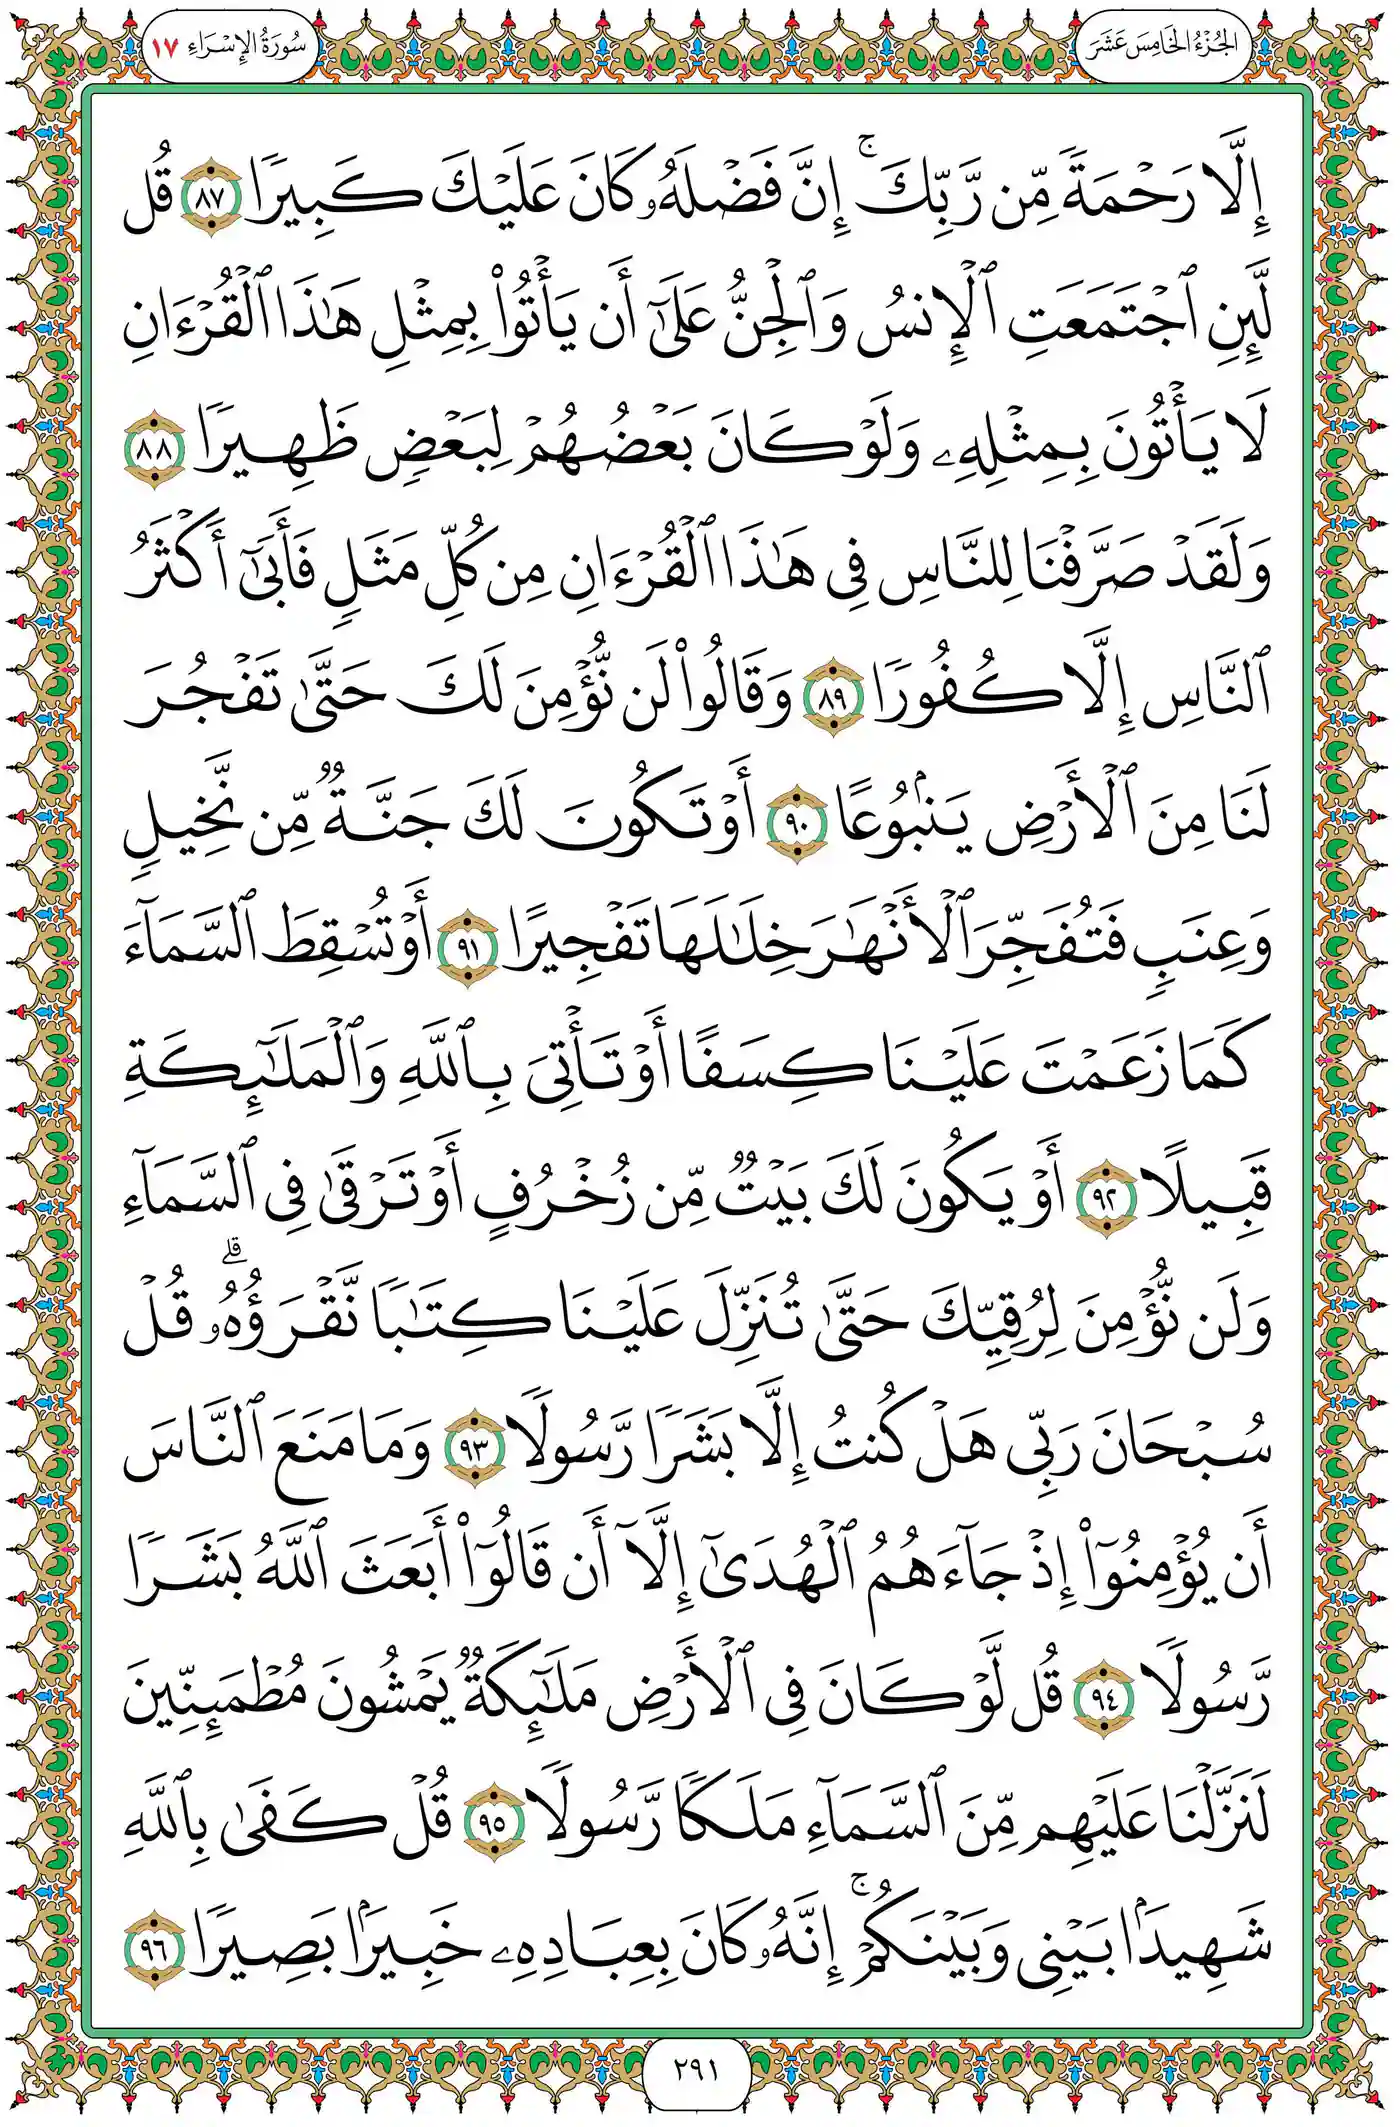 الجُزْءُ الخَامِسَ عَشَرَ
سُورَةُ الإِسْرَاءِ ١٧
إِلَّا رَحْمَةً مِّن رَّبِّكَ ۚ إِنَّ فَضْلَهُۥ كَانَ عَلَيْكَ كَبِيرًا ٨٧ قُل
لَّئِنِ ٱجْتَمَعَتِ ٱلْإِنسُ وَٱلْجِنُّ عَلَىٰٓ أَن يَأْتُوا۟ بِمِثْلِ هَٰذَا ٱلْقُرْءَانِ
لَا يَأْتُونَ بِمِثْلِهِۦ وَلَوْ كَانَ بَعْضُهُمْ لِبَعْضٍ ظَهِيرًا ٨٨
وَلَقَدْ صَرَّفْنَا لِلنَّاسِ فِى هَٰذَا ٱلْقُرْءَانِ مِن كُلِّ مَثَلٍ فَأَبَىٰٓ أَكْثَرُ
ٱلنَّاسِ إِلَّا كُفُورًا ٨٩ وَقَالُوا۟ لَن نُّؤْمِنَ لَكَ حَتَّىٰ تَفْجُرَ
لَنَا مِنَ ٱلْأَرْضِ يَنۢبُوعًا ٩٠ أَوْ تَكُونَ لَكَ جَنَّةٌ مِّن نَّخِيلٍ
وَعِنَبٍ فَتُفَجِّرَ ٱلْأَنْهَٰرَ خِلَٰلَهَا تَفْجِيرًا ٩١ أَوْ تُسْقِطَ ٱلسَّمَآءَ
كَمَا زَعَمْتَ عَلَيْنَا كِسَفًا أَوْ تَأْتِىَ بِٱللَّهِ وَٱلْمَلَٰٓئِكَةِ
قَبِيلًا ٩٢ أَوْ يَكُونَ لَكَ بَيْتٌ مِّن زُخْرُفٍ أَوْ تَرْقَىٰ فِى ٱلسَّمَآءِ
وَلَن نُّؤْمِنَ لِرُقِيِّكَ حَتَّىٰ تُنَزِّلَ عَلَيْنَا كِتَٰبًا نَّقْرَؤُهُۥ ۗ قُلْ
سُبْحَانَ رَبِّى هَلْ كُنتُ إِلَّا بَشَرًا رَّسُولًا ٩٣ وَمَا مَنَعَ ٱلنَّاسَ
أَن يُؤْمِنُوٓا۟ إِذْ جَآءَهُمُ ٱلْهُدَىٰٓ إِلَّآ أَن قَالُوٓا۟ أَبَعَثَ ٱللَّهُ بَشَرًا
رَّسُولًا ٩٤ قُل لَّوْ كَانَ فِى ٱلْأَرْضِ مَلَٰٓئِكَةٌ يَمْشُونَ مُطْمَئِنِّينَ
لَنَزَّلْنَا عَلَيْهِم مِّنَ ٱلسَّمَآءِ مَلَكًا رَّسُولًا ٩٥ قُلْ كَفَىٰ بِٱللَّهِ
شَهِيدًۢا بَيْنِى وَبَيْنَكُمْ ۚ إِنَّهُۥ كَانَ بِعِبَادِهِۦ خَبِيرًۢا بَصِيرًا ٩٦
٢٩١